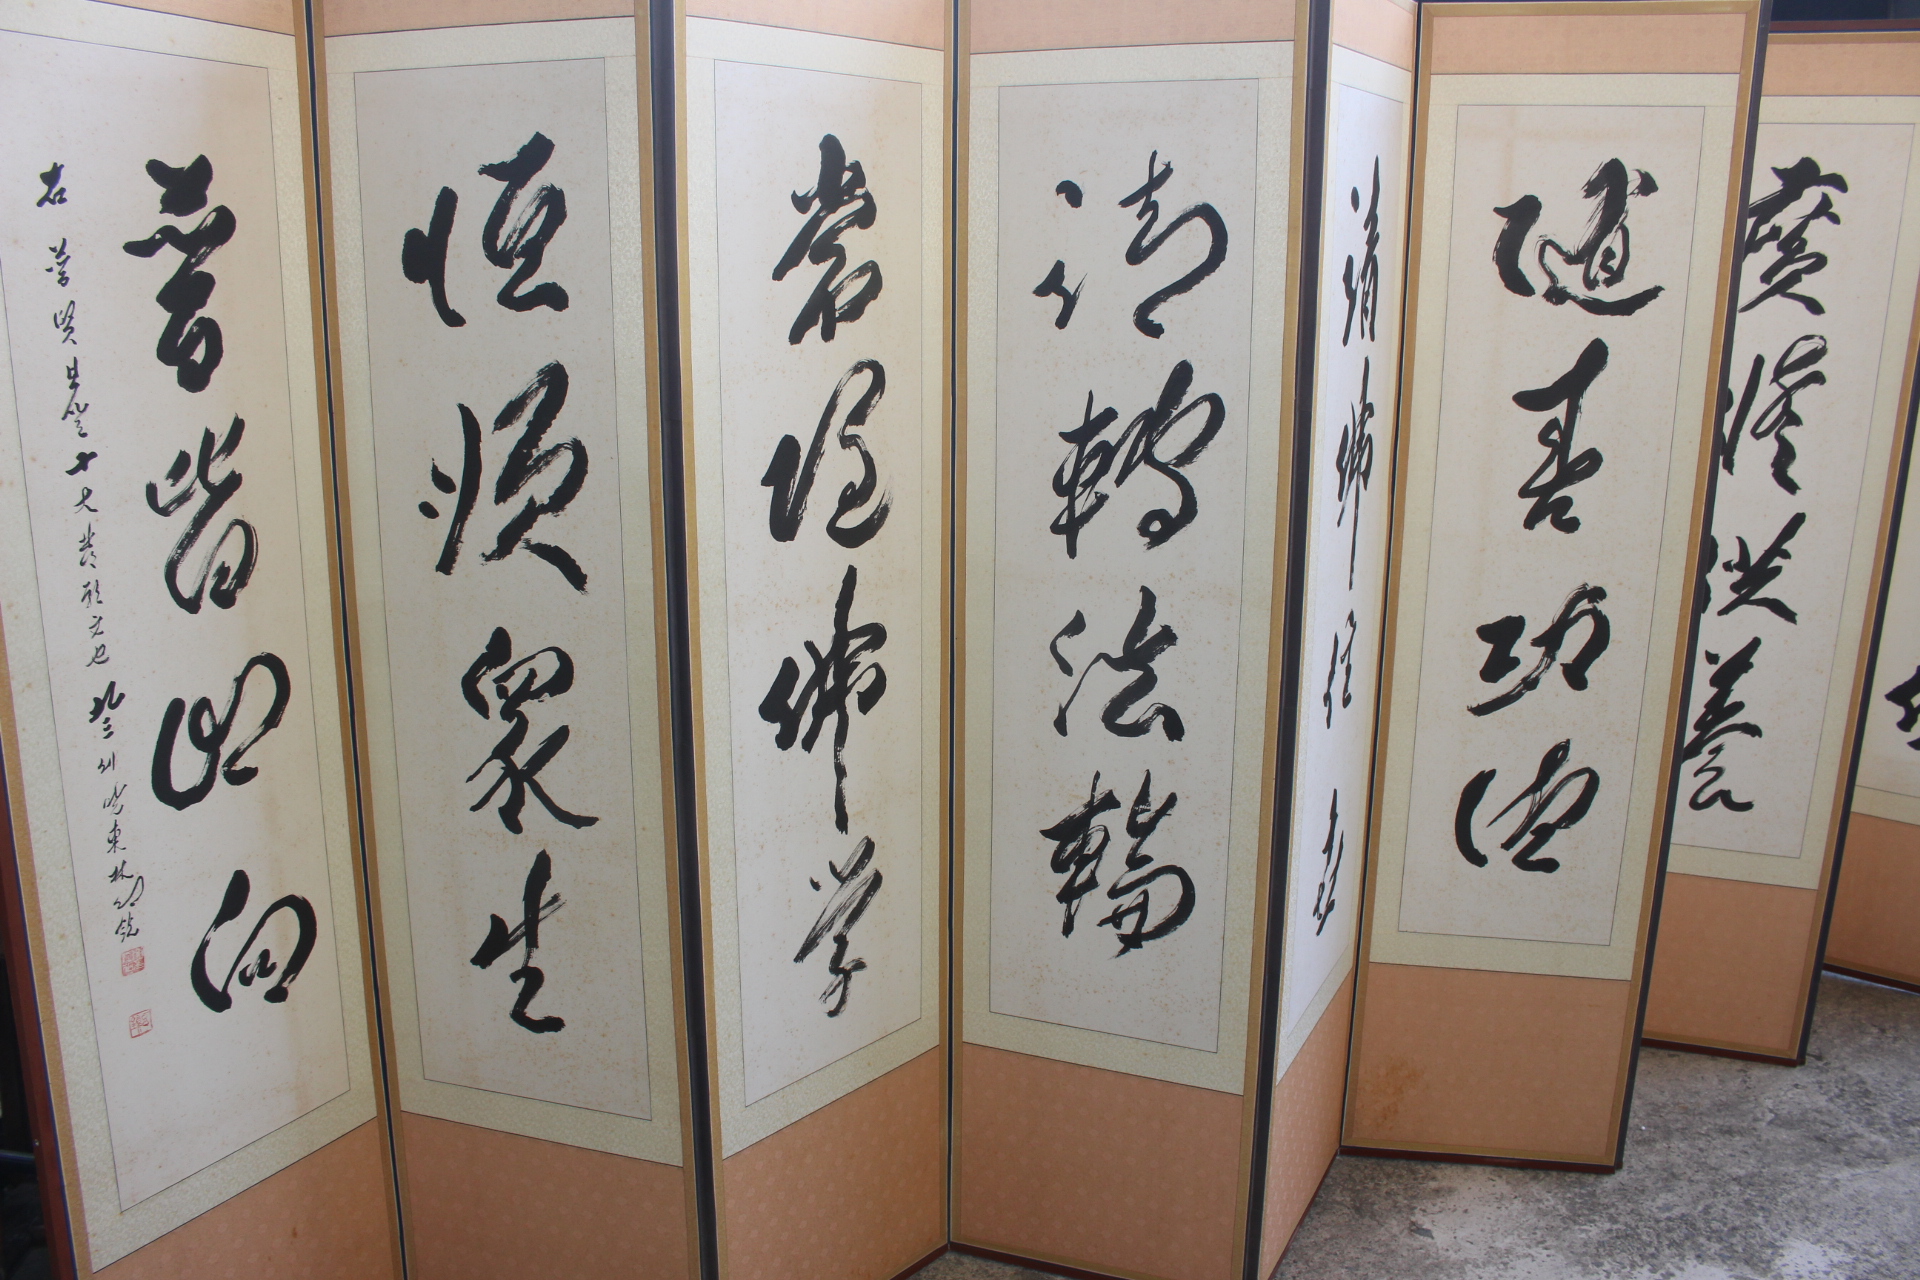 廣修供養
隨喜功德
請佛住世
請轉法輪
常隨佛學
恒順衆生
普皆回向
右普賢菩薩十大發願文也